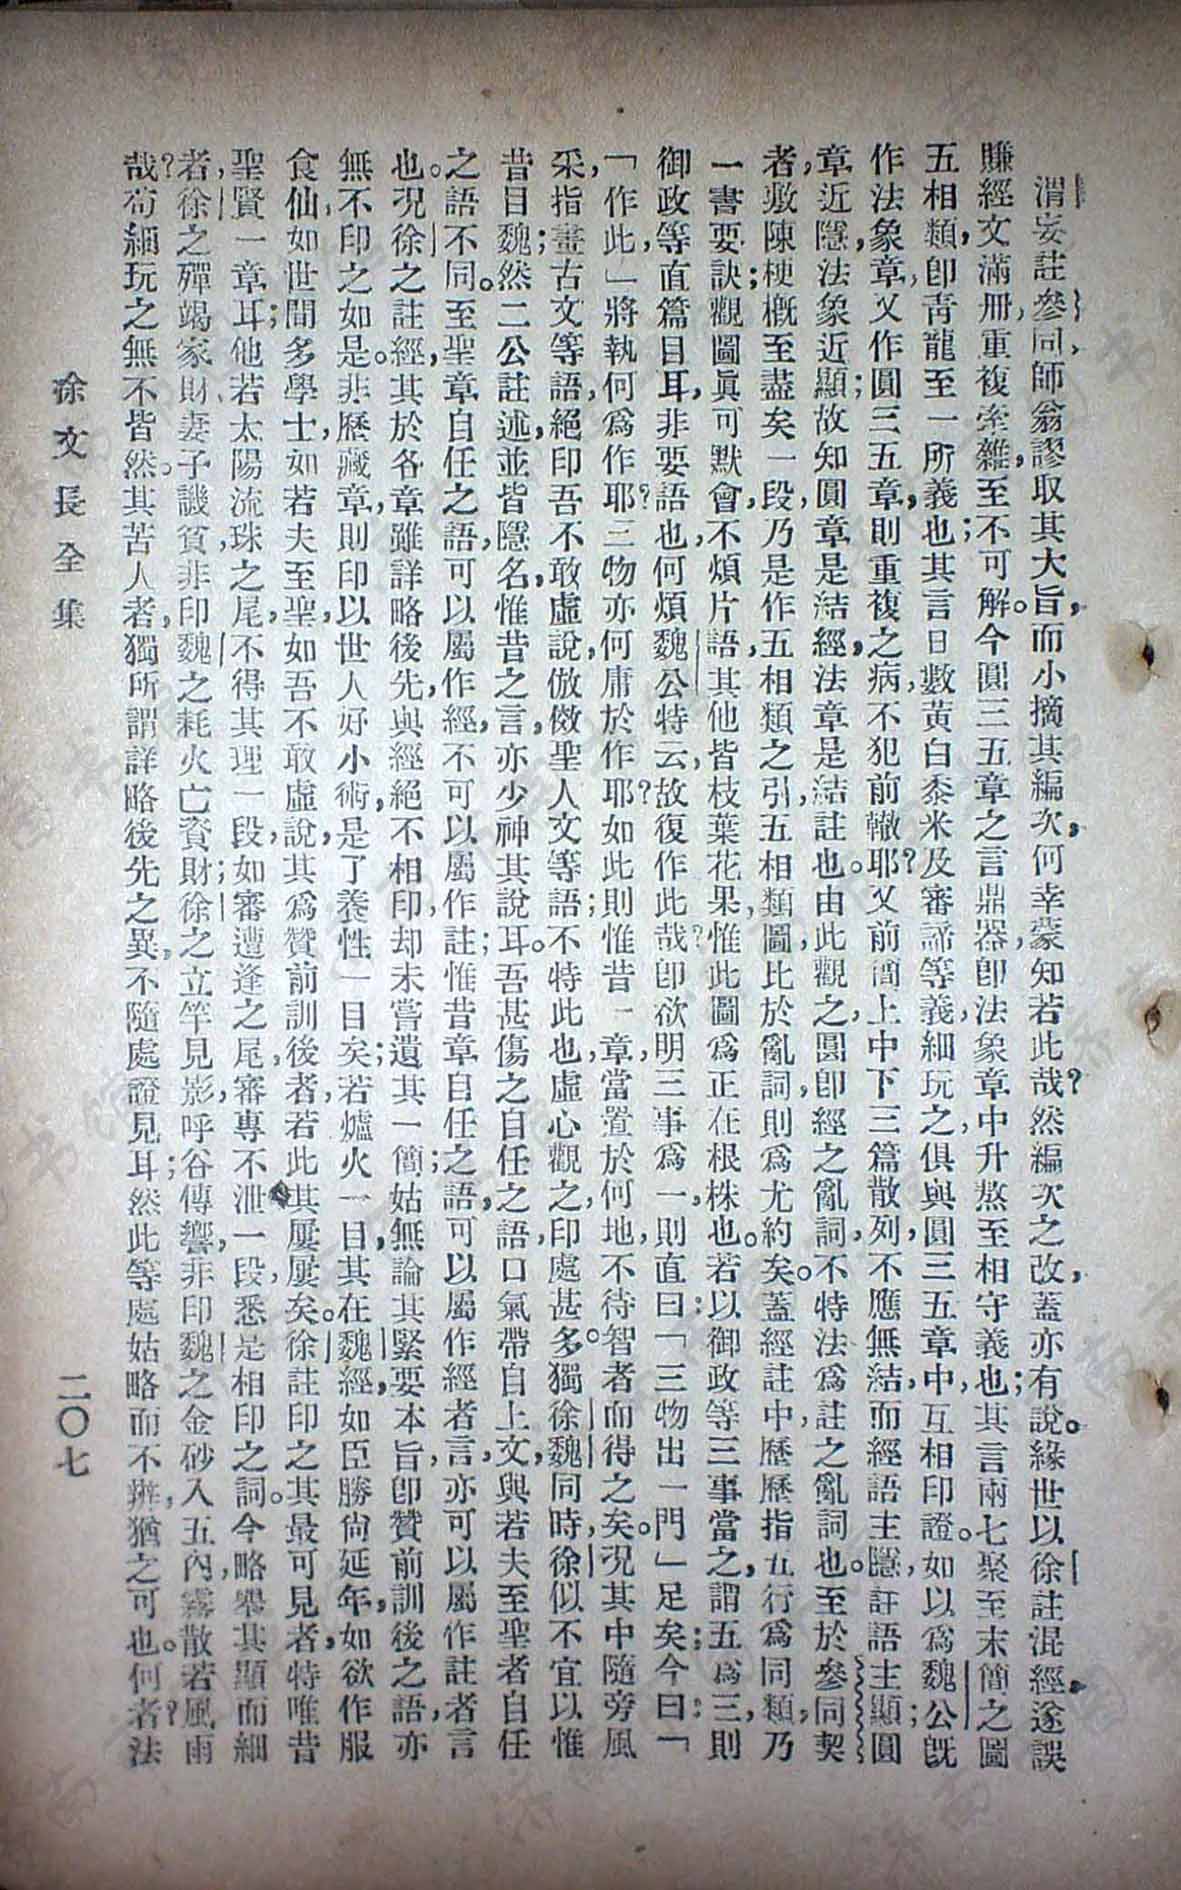 渭妄註參同師翁謬取其大旨，而小摘其編次，何幸蒙知若此哉？然編次之改，蓋亦有說。緣世以徐註混經，遂誤
賺經文滿冊，重複紊雜，至不可解。今圓三五章之言鼎器，卽法象章中升熬至相守義也；其言兩七聚至末簡之圖
五相類，卽青龍至一所義也；其言日數黃白黍米及審諦等義，細玩之，俱與圓三五章中，互相印證。如以爲魏公旣
作法象章，又作圓三五章，則重複之病，不犯前轍耶？又前簡上中下三篇散列，不應無結，而經語主隱，註語主顯；圓
章近隱，法象近顯；故知圓章是結經，法章是結註也。由此觀之，圓卽經之亂詞，不特法爲註之亂詞也。至於參同契
者，敷陳梗概至盡矣一段，乃是作五相類之引，五相類圖，比於亂詞，則爲尤約矣。蓋經註中，歷歷指五行爲同類，乃
一書要訣；觀圖眞可默會，不煩片語，其他皆枝葉花果，惟此圖爲正在根株也。若以御政等三事當之，謂五爲三，則
御政等直篇目耳，非要語也，何煩魏公特云，故復作此哉？卽欲明三事爲一，則直曰：「三物出一門」足矣；今曰：「
「作此」將執何爲作耶？三物亦何庸於作耶？如此則惟昔一章，當置於何地，不待智者而得之矣。況其中隨旁風
采，指畫古文等語，絕印吾不敢虛說，倣傚聖人文等語；不特此也，虛心觀之，印處甚多。獨徐魏同時，徐似不宜以惟
昔目魏；然二公註述，並皆隱名，惟昔之言，亦少神其說耳。吾甚傷之自任之語，口氣帶自上文，與若夫至聖者自任
之語不同。至聖章自任之語，可以屬作經，不可以屬作註；惟昔章自任之語，可以屬作經者言，亦可以屬作註者言
也。況徐之註經，其於各章，雖詳略後先，與經絕不相印，却未嘗遺其一簡；姑無論其緊要本旨，卽贊前訓後之語，亦
無不印之如是。非歷藏章，則印以世人好小術，是了養性」目矣；若爐火一目，其在魏經，如臣勝尙延年，如欲作服
食仙，如世間多學士，如若夫至聖，如吾不敢虛說，其爲贊前訓後者，若此其屢屢矣。徐註印之，其最可見者，特唯昔
聖賢一章耳；他若太陽流珠之尾，不得其理一段，如審遭逢之尾，審專不泄一段，悉是相印之詞。今略舉其顯而細
者，徐之殫竭家財，妻子譏貧，非印魏之耗火亡資財；徐之立竿見影，呼谷傳響，非印魏之金砂入五內，霧散若風雨
哉？苟細玩之，無不皆然。其苦人者，獨所謂詳略後先之異，不隨處證見耳；然此等處，姑略而不辨，猶之可也。何者？法
徐文長全集
二〇七